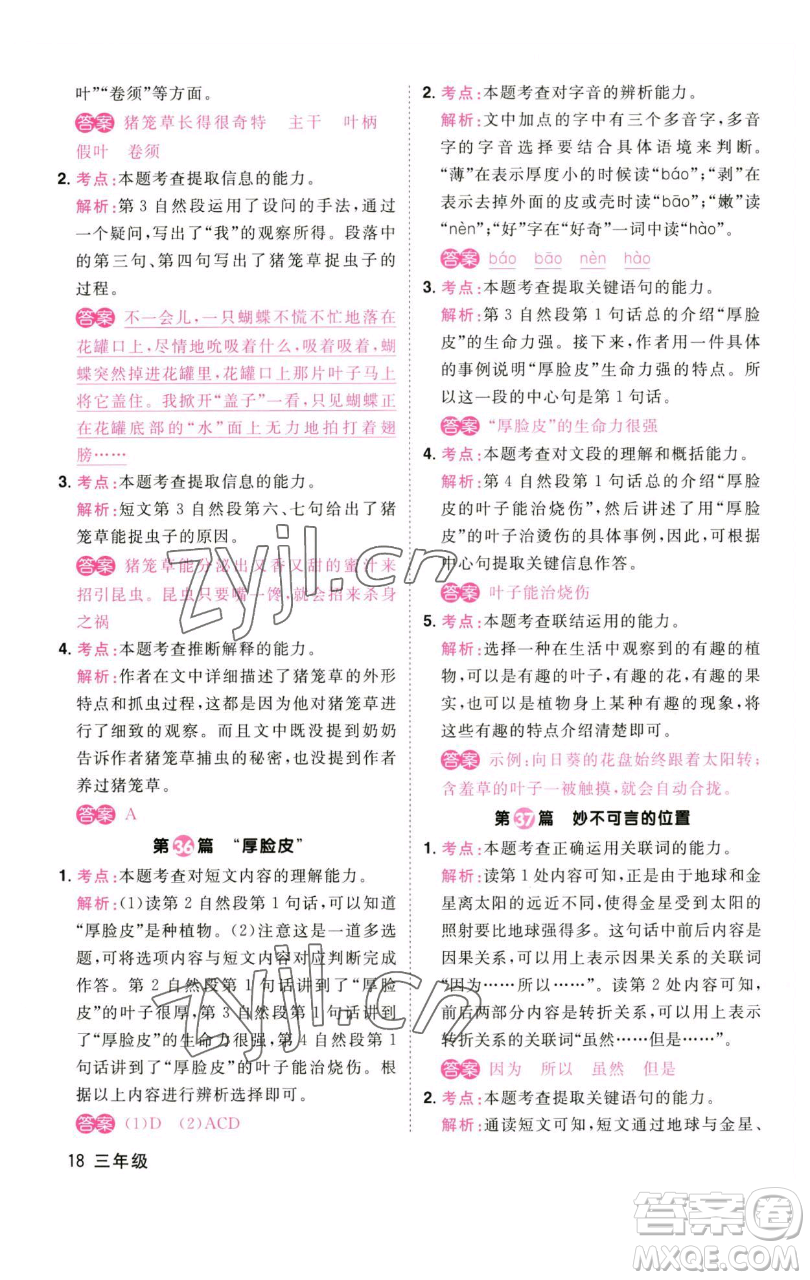 叶”“卷须”等方面。
答案 猪笼草长得很奇特 主干 叶柄
假叶 卷须
2. 考点:本题考查提取信息的能力。
解析:第 3 自然段运用了设问的手法,通过
一个疑问,写出了“我”的观察所得。段落中
的第三句、第四句写出了猪笼草捉虫子的
过程。
答案 不一会儿,一只蝴蝶不慌不忙地落在
花罐口上,尽情地吮吸着什么,吸着吸着,蝴
蝶突然掉进花罐里,花罐口上那片叶子马上
将它盖住。我掀开“盖子”一看,只见蝴蝶正
在花罐底部的“水”面上无力地拍打着翅
膀……
3. 考点:本题考查提取信息的能力。
解析:短文第 3 自然段第六、七句给出了猪
笼草能捉虫子的原因。
答案 猪笼草能分泌出又香又甜的蜜汁来
招引昆虫。昆虫只要嘴一馋,就会招来杀身
之祸
4. 考点:本题考查推断解释的能力。
解析:作者在文中详细描述了猪笼草的外形
特点和抓虫过程,这是因为他对猪笼草进
行了细致的观察。而且文中没有提到奶奶
告诉作者猪笼草捕虫的秘密,也没有提到他
养过猪笼草。
答案 A
第36篇 “厚脸皮”
1. 考点:本题考查对短文内容的理解能力。
解析:(1)读第 2 自然段第 1 句话,可以知道
“厚脸皮”是种植物。(2)注意这是一道多选
题,可将选项内容与短文内容对应判断完成
作答。第 2 自然段第 1 句话讲到了“厚脸
皮”的叶子很厚,第 3 自然段第 1 句话讲到
了“厚脸皮”的生命力很强,第 4 自然段第 1
句话讲到了“厚脸皮”的叶子能治烧伤。
根据以上内容进行辨析选择即可。
答案 (1)D (2)ACD
18 三年级
2. 考点:本题考查对字音的辨析能力。
解析:文中加点的字中有三个多音字,多音
字的字音要结合具体语境来判断。
“薄”在表示厚度小的时候读“báo”;“剥”在
表示去掉外面的皮或壳时读“bāo”;“嫩”读
“nèn”;“好”字在“好奇”一词中读“hào”。
答案 báo bāo nèn hào
3. 考点:本题考查提取关键语句的能力。
解析:第 3 自然段第 1 句话总的介绍“厚脸
皮”的生命力强。接下来,作者用一件具体
的事例说明“厚脸皮”生命力强的特点。所
以这一段的中心句是第 1 句话。
答案 “厚脸皮”的生命力很强
4. 考点:本题考查对文段的理解和概括能力。
解析:第 4 自然段第 1 句话总的介绍“厚脸
皮的叶子能治烧伤”,后面具体写了用“厚脸
皮”的叶子治烫伤的具体事例,因此,可根据
中心句提取关键信息作答。
答案 叶子能治烧伤
5. 考点:本题考查联结运用的能力。
解析:选择一种在生活中观察到的有趣的植
物,可以是有趣的叶子,有趣的花,有趣的果
实,也可以是植物身上某种有趣的现象,将
这些有趣的特点介绍清楚即可。
答案 示例:向日葵的花盘始终跟着太阳转;
含羞草的叶子一被触摸,就会自动合拢。
第37篇 妙不可言的位置
1. 考点:本题考查正确运用关联词的能力。
解析:读第 1 处内容可知,由于地球和金
星离太阳的远近不同,使得金星受到太阳的
照射要比地球强得多。这句话中前后内容是
因果关系,可以用上表示因果关系的关联词
“因为……所以……”。读第 2 处内容可知,
前后两部分内容是转折关系,可以用上表示
转折关系的关联词“虽然……但是……”。
答案 因为 所以 虽然 但是
2. 考点:本题考查提取关键语句的能力。
解析:通读短文可知,短文通过地球与金星、
zyjl.cn
zyjl.cn
答案卷
MXQE.COM